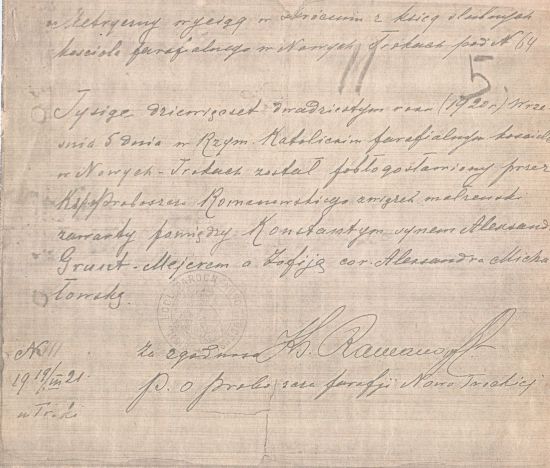 Metryczny wyciąg w skróceniu z ksiąg ślubnych
kościoła parafialnego w Nowych Trokach pod № 64
11 5
Tysiąc dziewięćset dwudziestym roku (1920 r) Wrze
śnia 5 dnia w Rzym. Katolickim parafialnym kościele
w Nowych-Trokach został pobłogosławiony przez
Proboszcza Romanowskiego związek małżeński
zawarty pomiędzy Konstantym synem Aleksandra
Grunt-Mejerem a Zofiją cor. Aleksandra Micha
łowską.
Za zgodność Ks. Ramanowski
№ 11
19 19/III 21. p. o proboszcza parafji Nowo Trockiej
w Troki